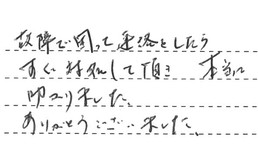 故障で困って連絡をしたら
すぐ対処して頂き 本当に
助かりました。
ありがとうございました。